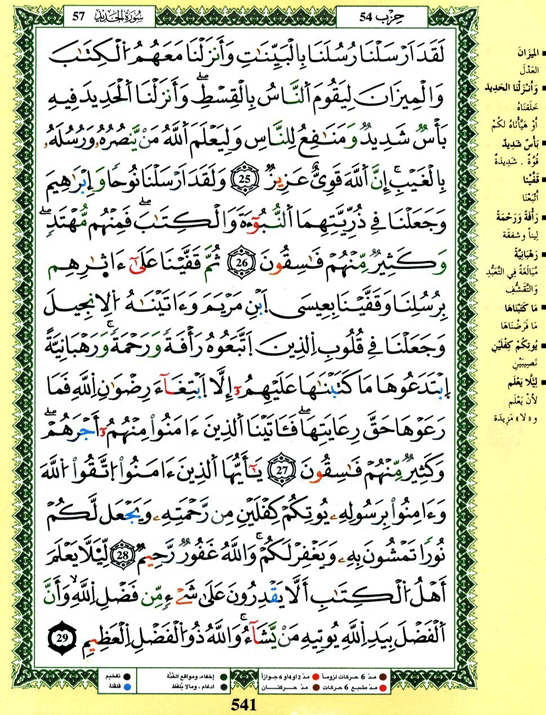 57 سُورَةُ الحَدِيد
حِزب 54
لَقَدَ اَرْسَلْنَا رُسُلَنَا بِالْبَيِّنَٰتِ وَأَنزَلْنَا مَعَهُمُ الْكِتَٰبَ
وَالْمِيزَانَ لِيَقُومَ النَّاسُ بِالْقِسْطِ وَأَنزَلْنَا الْحَدِيدَ فِيهِ
بَأْسٌ شَدِيدٌ وَمَنَٰفِعُ لِلنَّاسِ وَلِيَعْلَمَ اَللَّهُ مَنْ يَّنصُرُهُۥ وَرُسُلَهُۥ
بِالْغَيْبِ إِنَّ اَللَّهَ قَوِيٌّ عَزِيزٌ 25 وَلَقَدَ اَرْسَلْنَا نُوحًا وَإِبْرَٰهِيمَ
وَجَعَلْنَا فِي ذُرِّيَّتِهِمَا اَلنُّبُوٓءَةَ وَالْكِتَٰبَ فَمِنْهُم مُّهْتَدٍ
وَكَثِيرٌ مِّنْهُمْ فَٰسِقُونَ 26 ثُمَّ قَفَّيْنَا عَلَىٰٓ ءَاثٰ۪رِهِم
بِرُسُلِنَا وَقَفَّيْنَا بِعِيسَى اَبْنِ مَرْيَمَ وَءَاتَيْنَٰهُ اُلِانجِيلَ
وَجَعَلْنَا فِي قُلُوبِ اِلذِينَ اَتَّبَعُوهُ رَأْفَةً وَرَحْمَةً وَرَهْبَانِيَّةً
اِبْتَدَعُوهَا مَا كَتَبْنَٰهَا عَلَيْهِمُۥٓ إِلَّا اَبْتِغَآءَ رِضْوَٰنِ اِللَّهِ فَمَا
رَعَوْهَا حَقَّ رِعَايَتِهَا فَـَٔاتَيْنَا اَلذِينَ ءَامَنُوا مِنْهُمُۥٓ أَجْرَهُمْ
وَكَثِيرٌ مِّنْهُمْ فَٰسِقُونَ 27 يَٰٓأَيُّهَا اَلذِينَ ءَامَنُوا اُتَّقُوا اُللَّهَ
وَءَامِنُوا بِرَسُولِهِۦ يُوتِكُمْ كِفْلَيْنِ مِن رَّحْمَتِهِۦ وَيَجْعَل لَّكُمْ
نُورًا تَمْشُونَ بِهِۦ وَيَغْفِرْ لَكُمْ وَاللَّهُ غَفُورٌ رَّحِيمٌ 28 لِّيَلَّا يَعْلَمَ
أَهْلُ الْكِتَٰبِ أَلَّا يَقْدِرُونَ عَلَىٰ شَےْءٍ مِّن فَضْلِ اِللَّهِ وَأَنَّ
اَلْفَضْلَ بِيَدِ اِللَّهِ يُوتِيهِ مَنْ يَّشَآءُ وَاللَّهُ ذُو الْفَضْلِ اِلْعَظِيمِ 29
الميزانَ
العَدْلَ
وَأنْزَلْنَا الحَدِيد
خلَقناهُ
أوْ هَيَّأناهُ لكُمْ
بَأسٌ شَدِيدٌ
قُوَّة. شَدِيدَة
قَفَّيْنَا
أتْبَعْنا
رَأفَةً وَرَحْمَةً
لِيناً وشفقَة
رَهْبَانِيَّةً
مُبَالَغَة فِي التَّعَبُّدِ
وَالتَّقَشُّفِ
مَا كَتَبْنَاهَا
مَا فَرَضْنَاهَا
يُوتِكُمْ كِفْلَيْنِ
نَصِيبَيْنِ
لِيَلَّا يَعْلَم
لأنْ يَعْلَم
و«لا» مَزِيدة
مدّ 6 حركات لزوماً مدّ 2 أو 4 أو 6 جوازاً إخفاء، ومواقع الغُنَّة تفخيم
مدّ مشبع 6 حركات مدّ حركتان ادغام، ومالا يُلفظ قلقلة
541